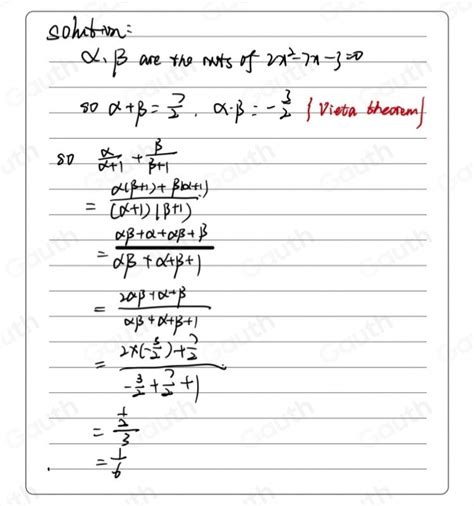 solution:
α, β are the roots of 2x²-7x-3=0
so α+β=7/2, α·β=-3/2 {Vieta theorem}
so α/(α+1) + β/(β+1)
= (α(β+1)+β(α+1))/((α+1)(β+1))
= (αβ+α+αβ+β)/(αβ+α+β+1)
= (2αβ+α+β)/(αβ+α+β+1)
= (2×(-3/2)+7/2)/(-3/2+7/2+1)
= (1/2)/3
= 1/6